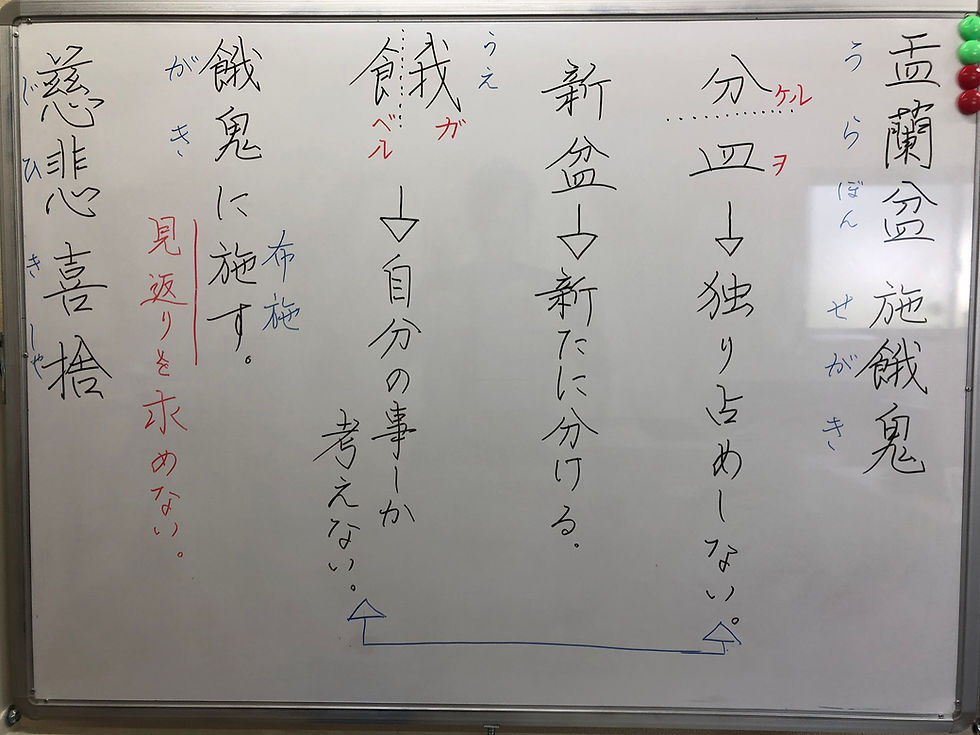 盂蘭盆 施餓鬼
うらぼん せがき
分ケル
皿ヲ→独り占めしない。
新盆→新たに分ける。
うえ
我ガ
食ベル→自分の事しか
考えない。
布施
餓鬼に施す。
がき
見返りを求めない。
慈悲喜捨
じひきしゃ